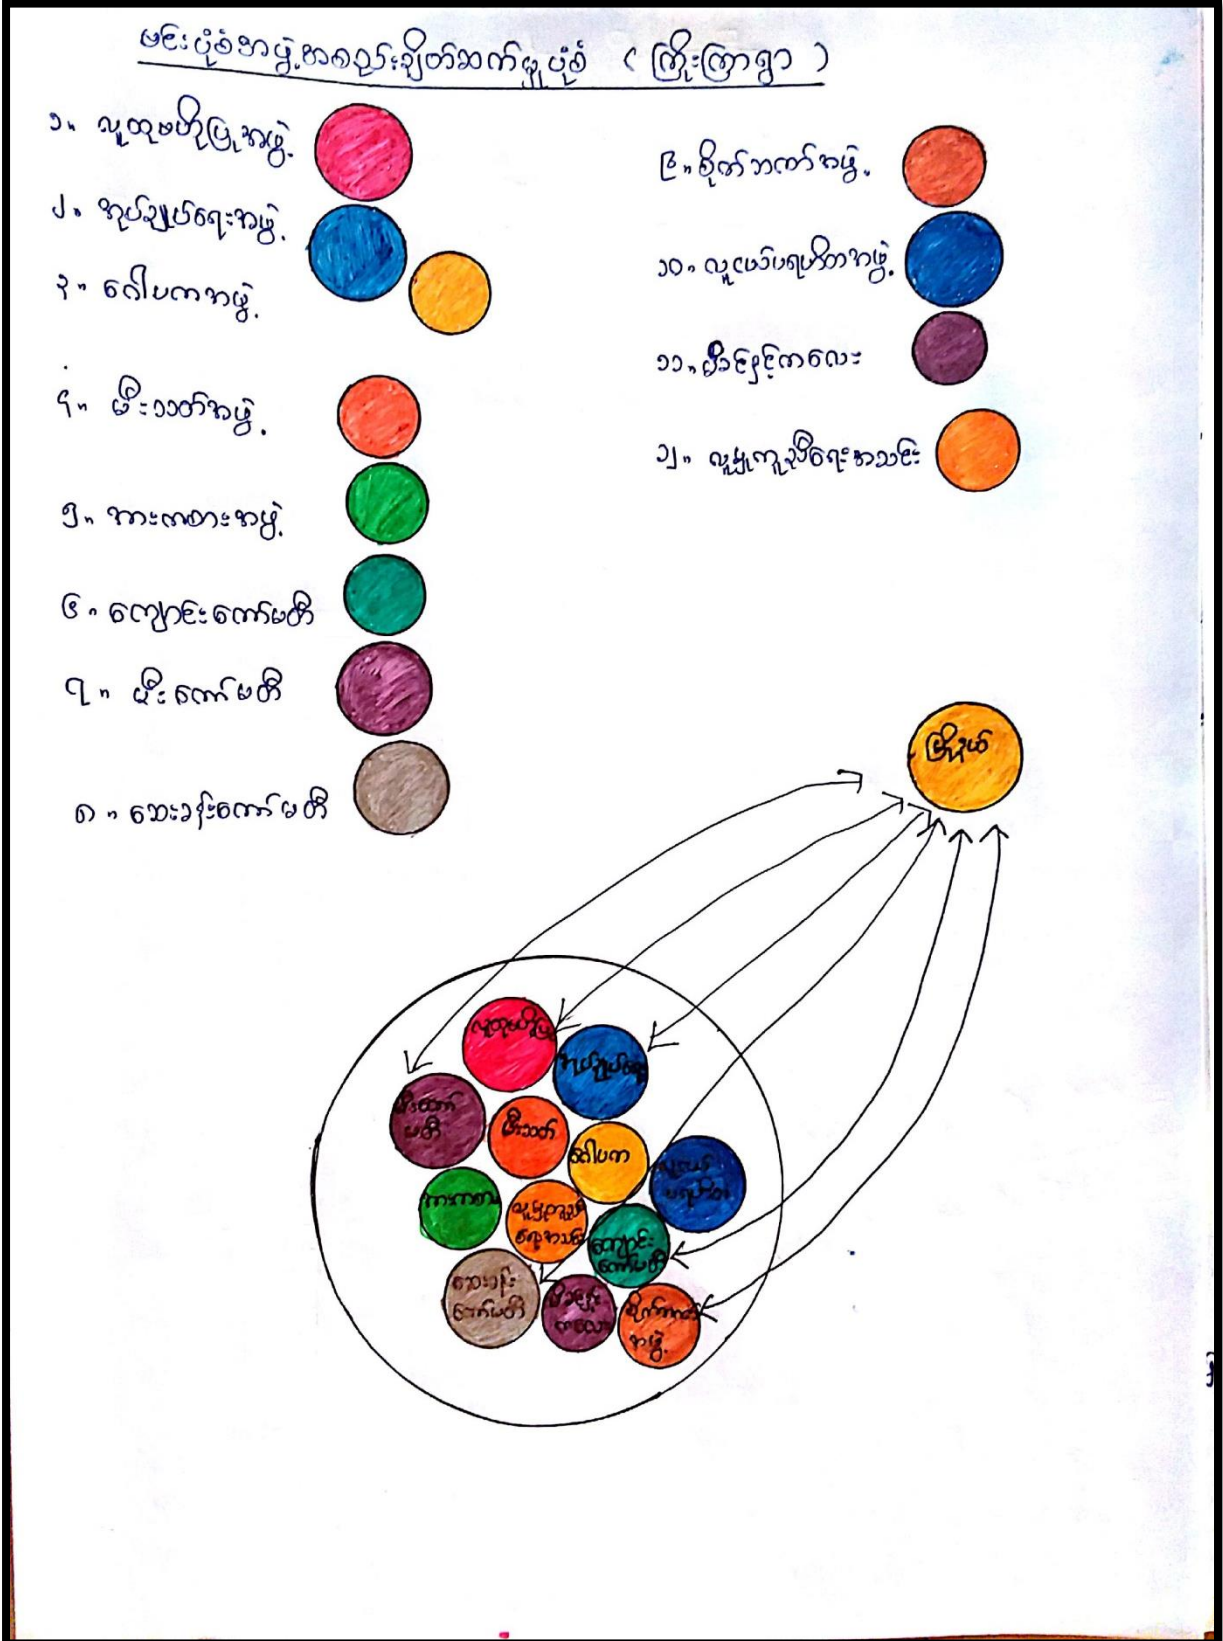 မင်းပုံစံအဖွဲ့အစည်းချိတ်ဆက်မှုပုံစံ ( ကြိုးကြာရွာ )
၁။ လူထုဗဟိုပြုအဖွဲ့
၂။ အုပ်ချုပ်ရေးအဖွဲ့
၃။ ဂေါပကအဖွဲ့
၄။ မီးသတ်အဖွဲ့
၅။ အားကစားအဖွဲ့
၆။ ကျောင်းကော်မတီ
၇။ မီးကော်မတီ
၈။ ဆေးခန်းကော်မတီ
၉။ စိုက်ဘဏ်အဖွဲ့
၁၀။ လူငယ်ပရဟိတအဖွဲ့
၁၁။ မိခင်နှင့်ကလေး
၁၂။ လူမှုကူညီရေးအသင်း
မြို့နယ်
လူထုဗဟိုပြု
အုပ်ချုပ်ရေး
မီးကော်
မတီ
မီးသတ်
ဂေါပက
လူငယ်
ပရဟိတ
အားကစား
လူမှုကူညီ
ရေးအသင်း
ကျောင်း
ကော်မတီ
ဆေးခန်း
ကော်မတီ
မိခင်နှင့်
ကလေး
စိုက်ဘဏ်
အဖွဲ့